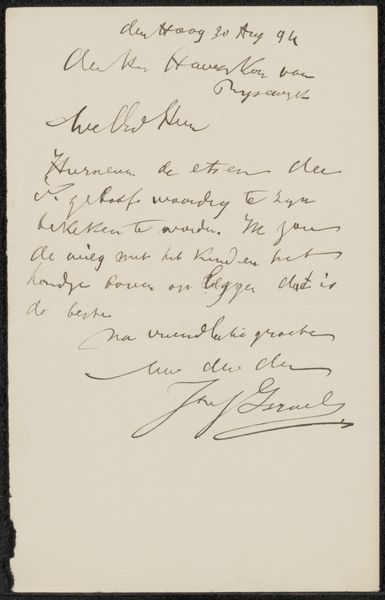 den Haag 20 Aug 94
den Hr Haverkorn van
Rijsewijk
Hiernevens de etsen die
ik geloof waardig te zijn
bekeken te worden. Ik zou
de wieg met het kind en het
hondje boven op leggen dat is
de beste
na vriendelijke groeten
Uw dw dr
Jozef Israels